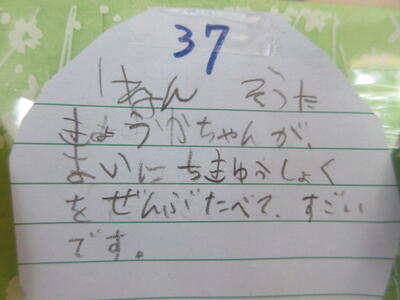 37
1ねん そうた
きょうかちゃんが、
まいにちきゅうしょく
をぜんぶたべて、すごい
です。